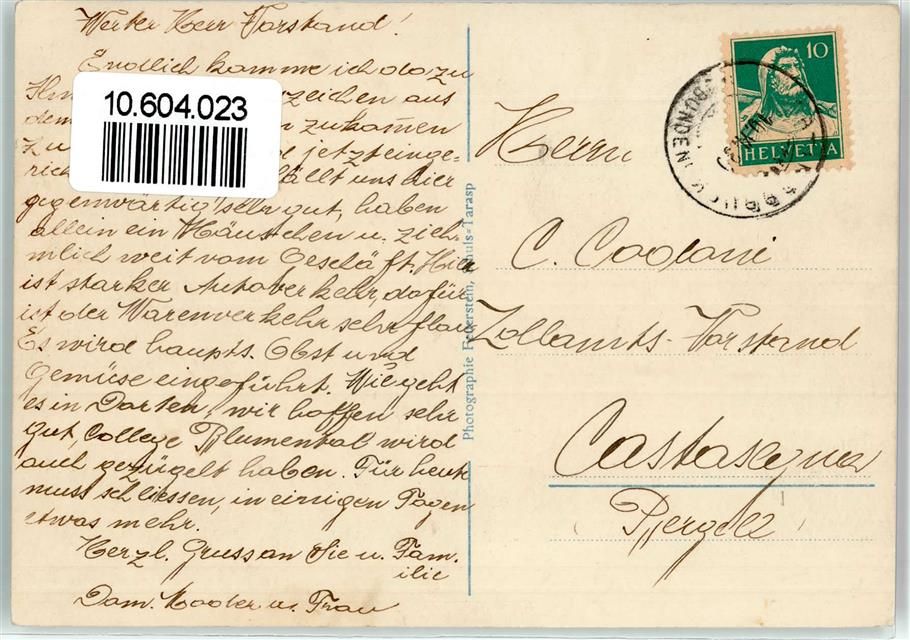 Werter Herr Vorstand!
Endlich komme ich dazu
zeichen aus
dem zukom̄en
zu jetzt einge-
rich ällt uns hier
gegenwärtig sehr gut, haben
allein ein Häuschen u. ziem-
mlich weit vom Geschäft. Hier
ist starker Autoverkehr, dafür
ist der Warenverkehr sehr flau
Es wird haupts. Obst und
Gemüse eingeführt. Wie geht
es in Dorten, wir hoffen sehr
gut, College Blumental wird
auch gezügelt haben. Für heute
muss schliessen, in einigen Tagen
etwas mehr.
Herzl. Gruss an Sie u. Fam-
ilie
u. Frau
10.604.023
Photographie Feuerstein, Schuls-Tarasp
10
HELVETIA
Herrn
C.
Zollamts-Vorstand
Castasegna
(Bergell)